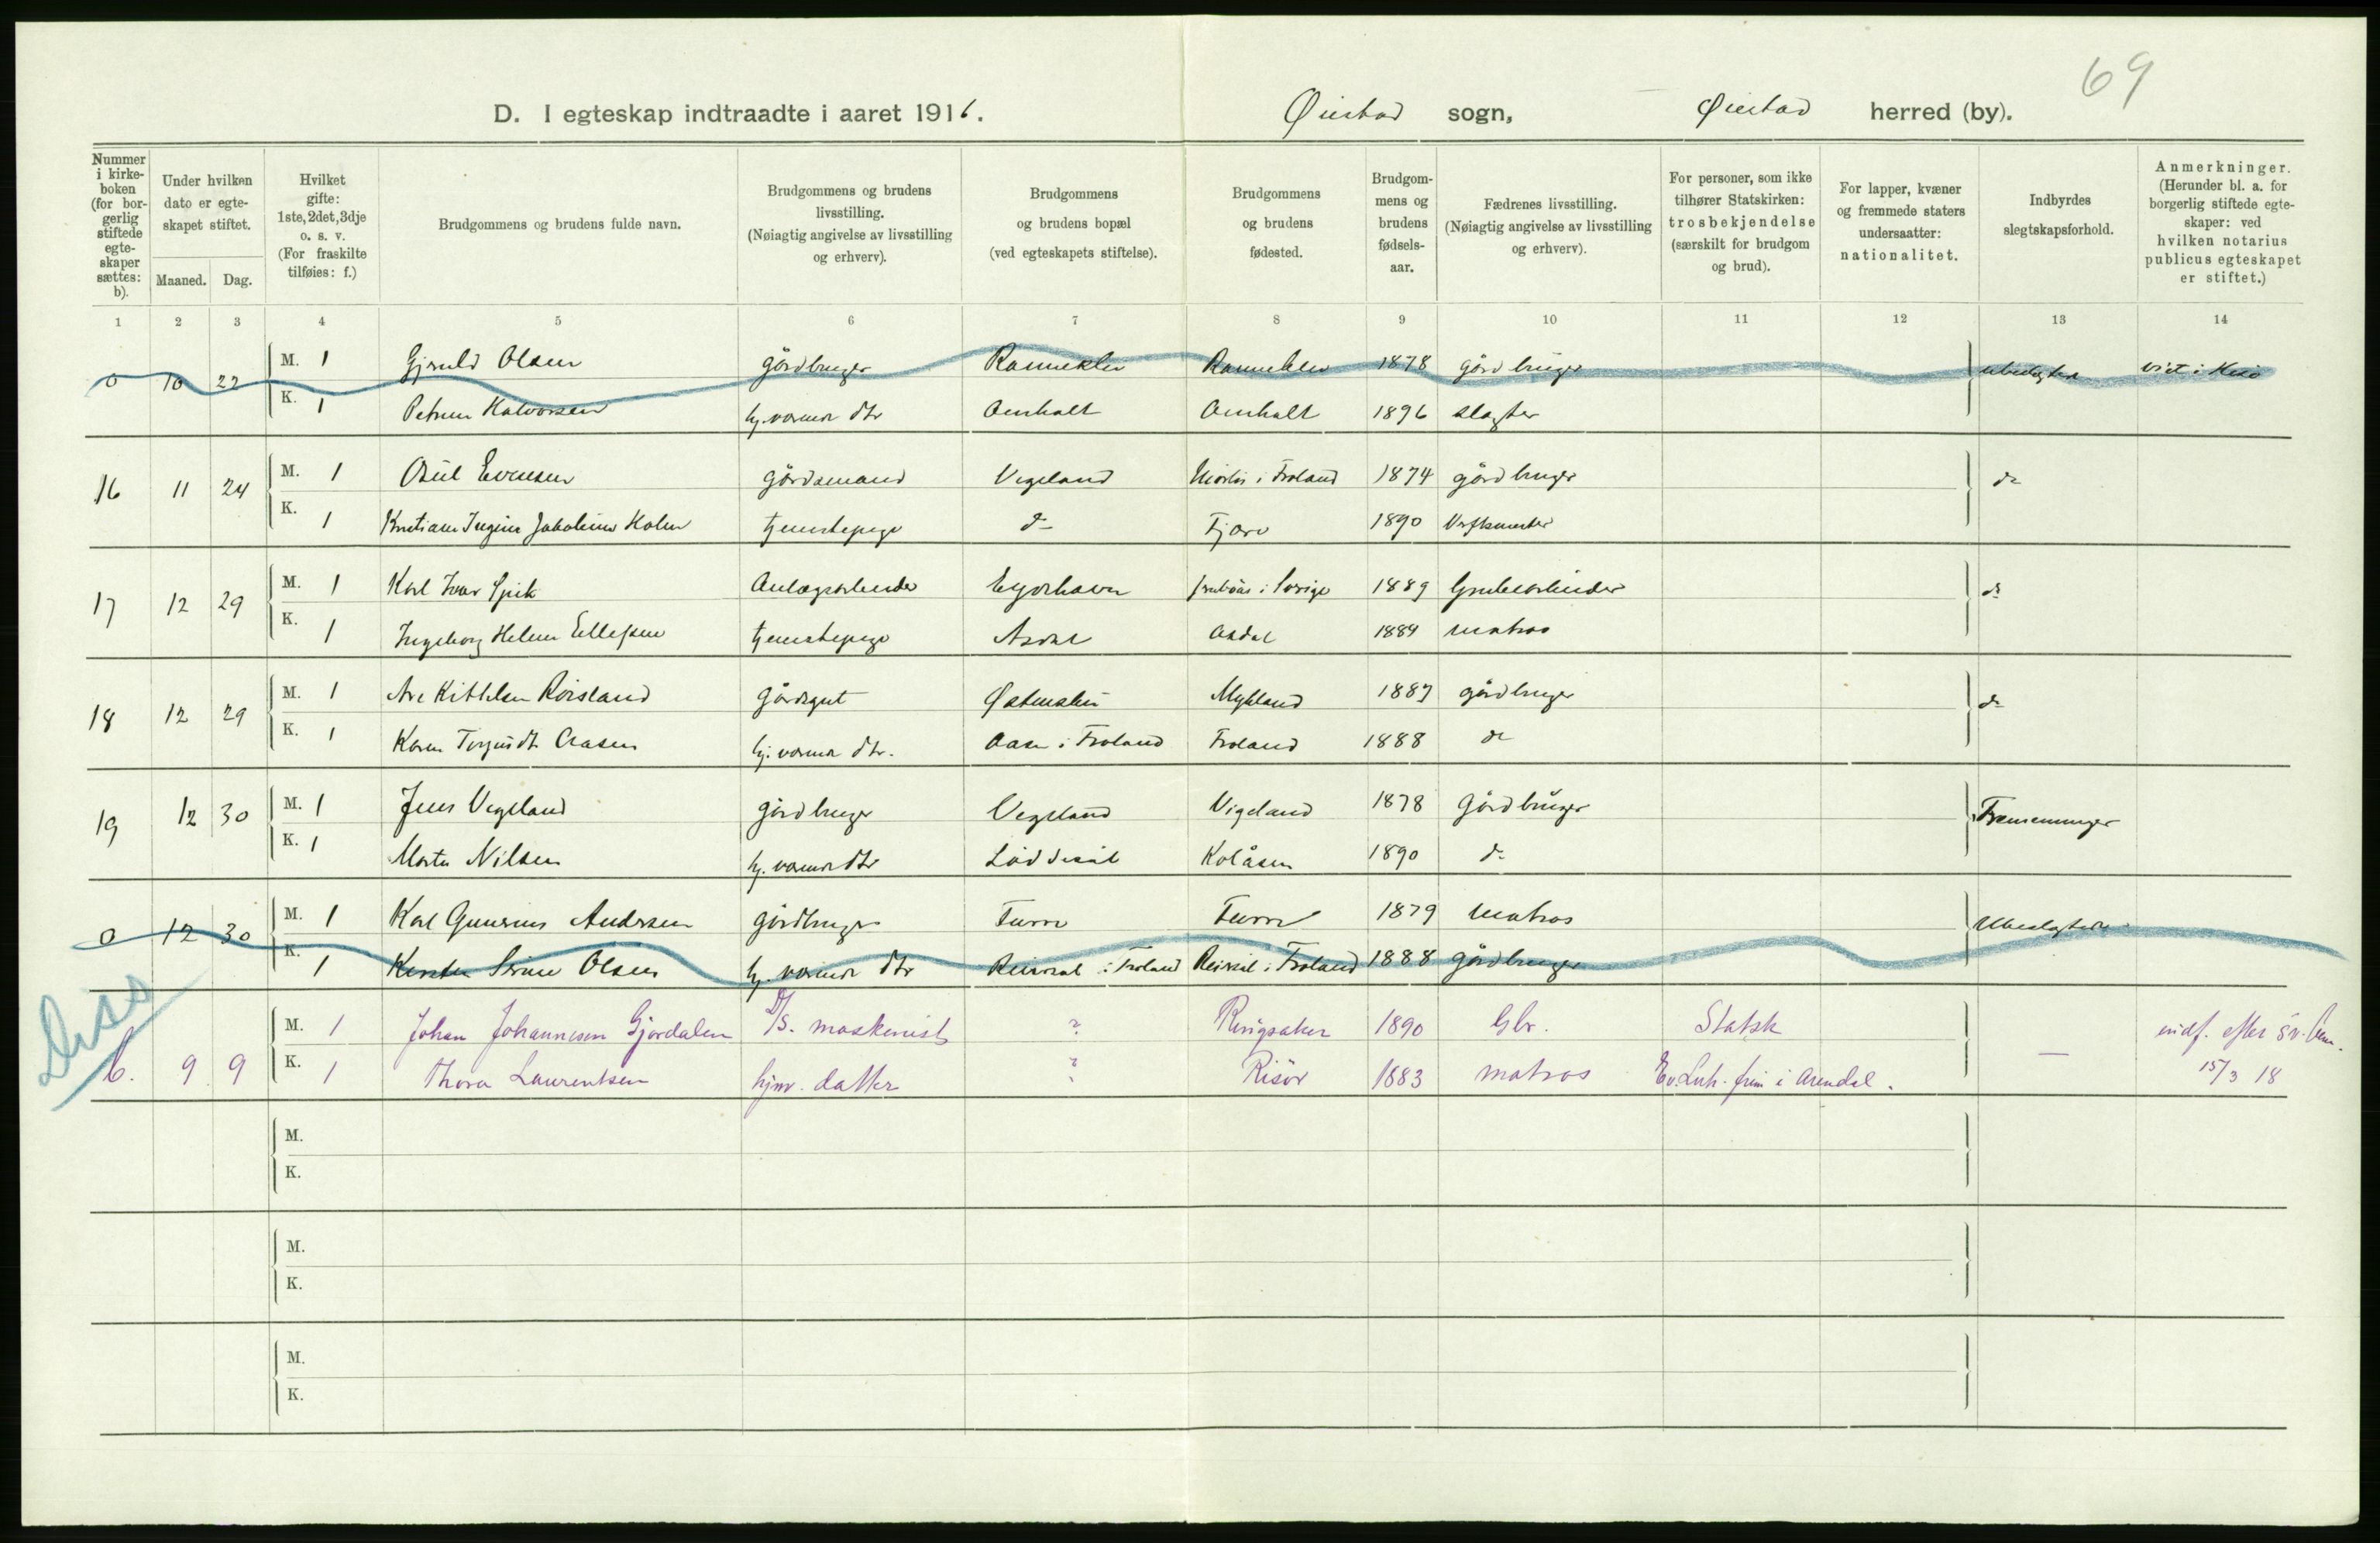 69
D. I egteskap indtraadte i aaret 1916. Øiestad sogn, Øiestad herred (by).
Nummer i kirke-boken (for bor-gerlig stiftede egte-skaper sættes: b).
Under hvilken dato er egte-skapet stiftet.
Maaned. Dag.
Hvilket gifte: 1ste, 2det, 3dje o. s. v. (For fraskilte tilføies: f.)
Brudgommens og brudens fulde navn.
Brudgommens og brudens livsstilling. (Nøiagtig angivelse av livsstilling og erhverv).
Brudgommens og brudens bopæl (ved egteskapets stiftelse).
Brudgommens og brudens fødested.
Brudgom-mens og brudens fødsels-aar.
Fædrenes livsstilling. (Nøiagtig angivelse av livsstilling og erhverv).
For personer, som ikke tilhører Statskirken: trosbekjendelse (særskilt for brudgom og brud).
For lapper, kvæner og fremmede staters undersaatter: nationalitet.
Indbyrdes slegtskapsforhold.
Anmerkninger. (Herunder bl. a. for borgerlig stiftede egte-skaper: ved hvilken notarius publicus egteskapet er stiftet.)
1 2 3 4 5 6 7 8 9 10 11 12 13 14
0 10 22 M. 1 Gjeruld Olsen gårdbruger Rannekleiv Rannekleiv 1878 gårdbruger ubeslegtede viet i
K. 1 Petrine Halvorsen hj. værende dtr Omholt Omholt 1896 slagter
16 11 24 M. 1 Osul Evensen gårdsmand Vegeland i Froland 1874 gårdbruger do
K. 1 Kristiane Ingine Jakobine Holm tjenestepige do Fjære 1890
17 12 29 M. 1 Karl Ivar Anlægsarbeider Eydehavn i Sverige 1889 Grubearbeider do
K. 1 Ingeborg Helene Ellefsen tjenestepige Asdal Asdal 1884 matros
18 12 29 M. 1 Are Kittelsen Røisland gårdsgut Østensbu Mykland 1887 gårdbruger do
K. 1 Karen Torjusdt. Aasen hj. værende dtr. Aasen i Froland Froland 1888 do
19 12 30 M. 1 Jens Vegeland gårdbruger Vegeland Vigeland 1878 Gårdbruger Tremenninger
K. 1 Marte Nilsen hj. værende dtr Løddesøl Kolåsen 1890 do
0 12 30 M. 1 Karl Gunerius Andersen gårdbruger Furre Furre 1879 matros Ubeslegtede
K. 1 Kirsten Serine Olsen hj. værende dtr i Froland i Froland 1888 gårdbruger
Diss
b. 9 9 M. 1 Johan Johannesen Gjørdalen D/S. maskinist ? Ringsaker 1890 Gbr. Statsk — indf. efter
K. 1 Thora Laurentsen hjmv. datter ? Risör 1883 matros Ev. Luth. frim i Arendal. 15/3 18
M.
K.
M.
K.
M.
K.